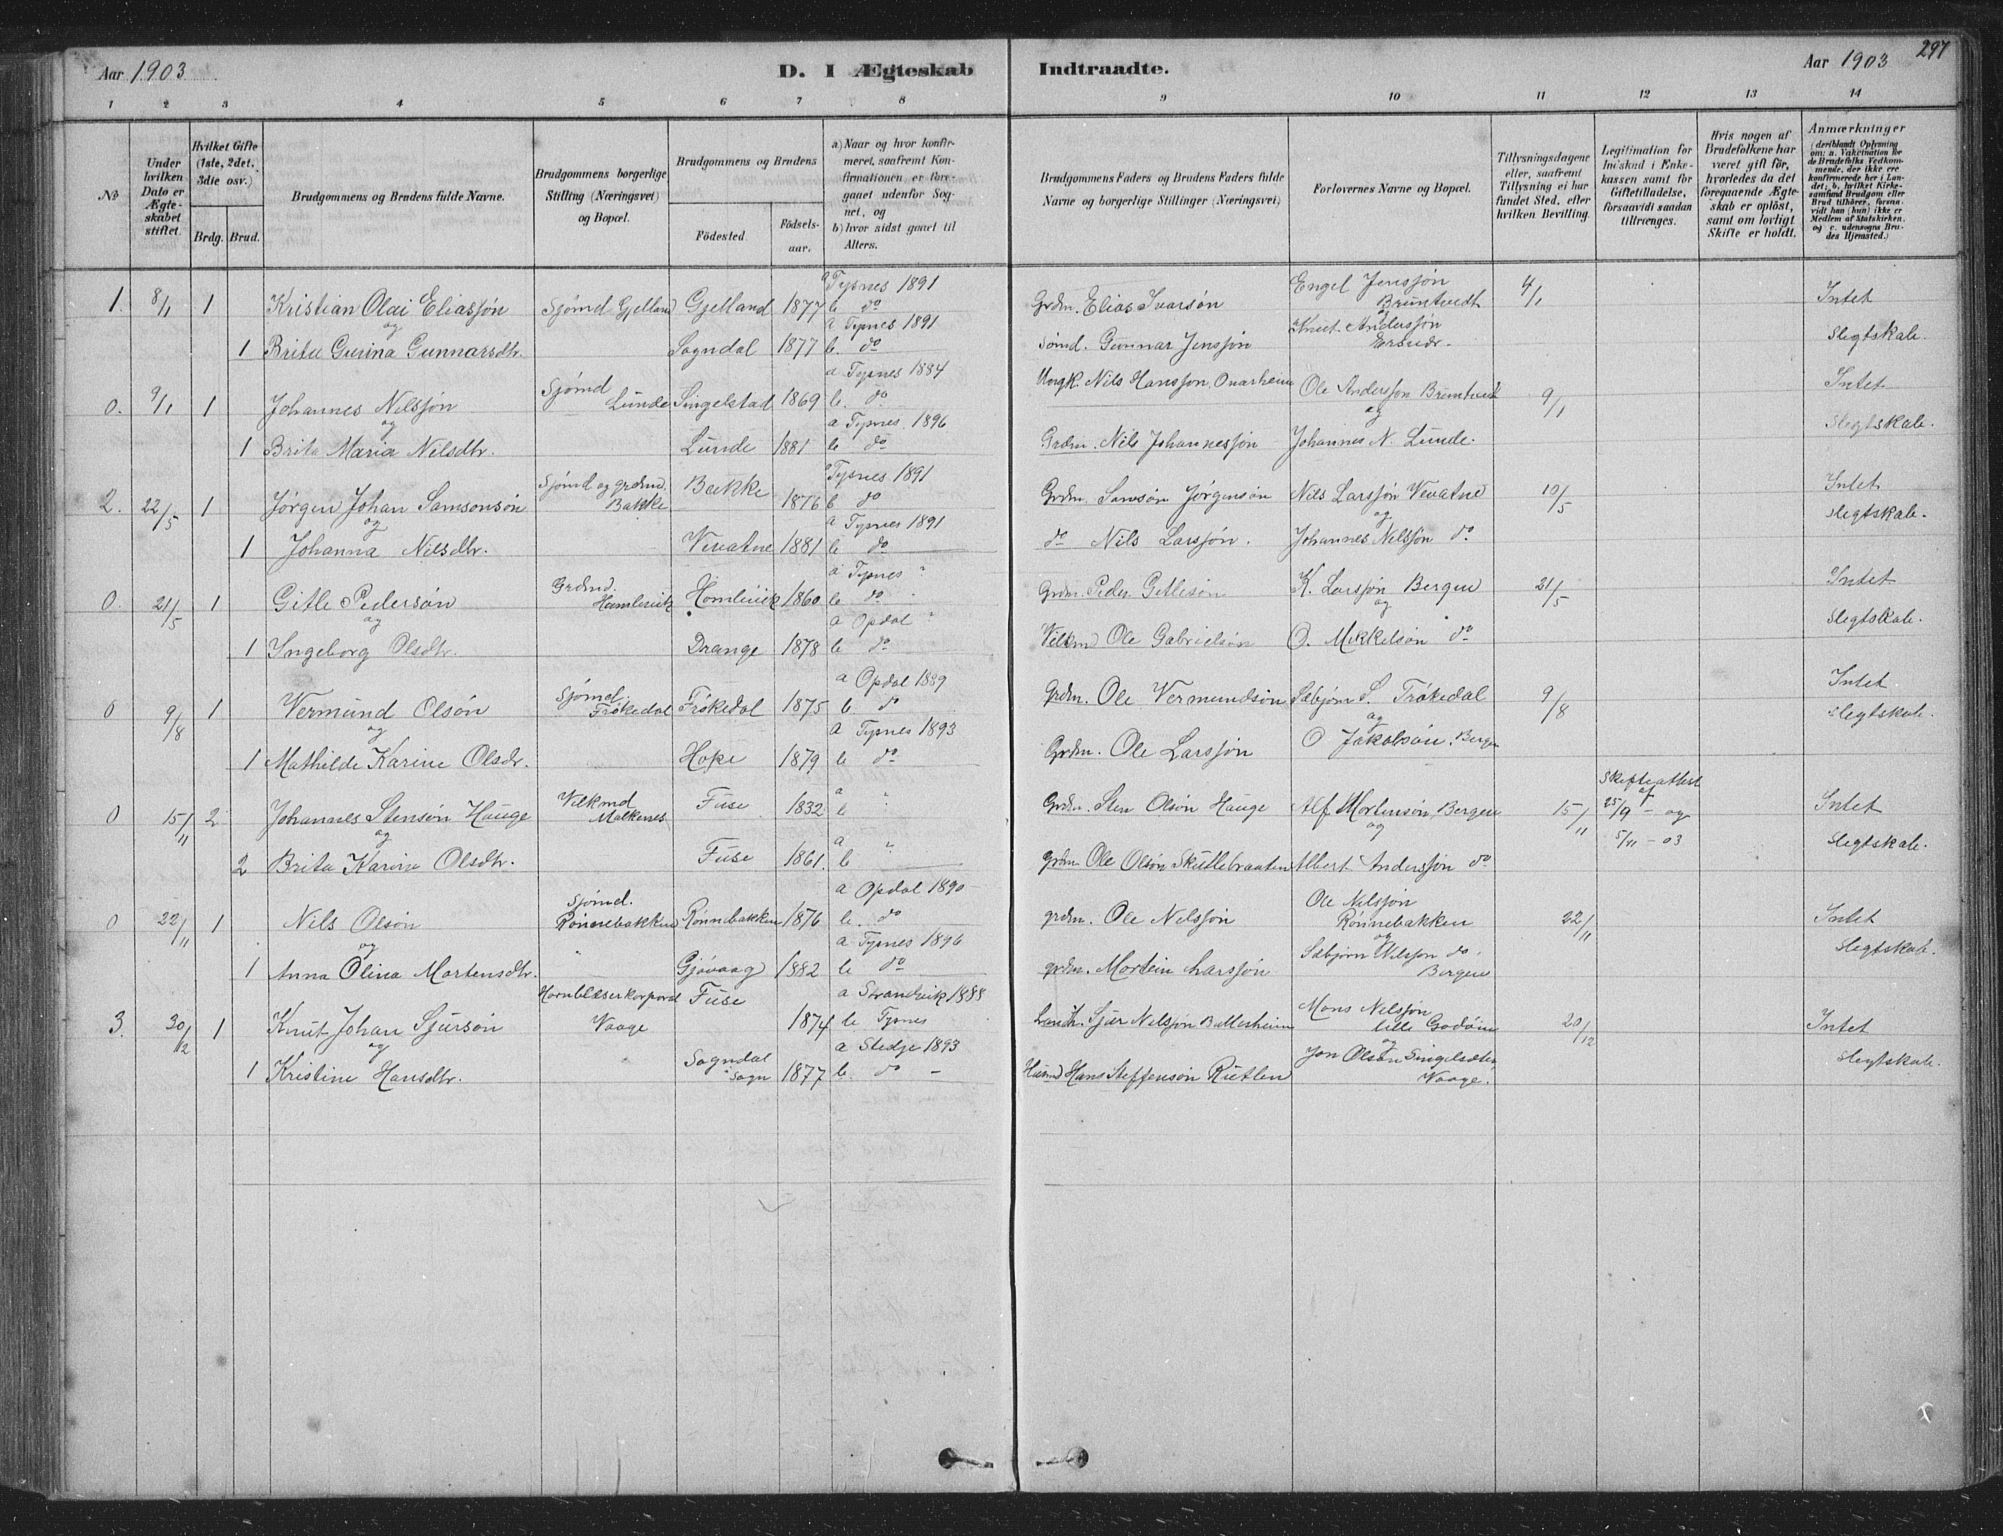 Aar 1903
D. I Ægteskab Indtraadte.
Aar 1903 297
1 2 3 4 5 6 7 8 9 10 11 12 13 14
No
Under hvilken Dato er Ægte-skabet stiftet.
Hvilket Gifte (1ste, 2det, 3die osv.)
Brdg. Brud.
Brudgommens og Brudens fulde Navne.
Brudgommens borgerlige Stilling (Næringsvei) og Bopæl.
Brudgommens og Brudens
Fødested
Fødsels-aar.
a) Naar og hvor konfir-meret, saafremt Kon-firmationen er fore-gaaet udenfor Sog-net, og
b) hvor sidst gaaet til Alters.
Brudgommens Faders og Brudens Faders fulde Navne og borgerlige Stillinger (Næringsvei)
Forlovernes Navne og Bopæl.
Tillysningsdagene eller, saafremt Tillysning ei har fundet Sted, efter hvilken Bevilling.
Legitimation for Indskud i Enke-kassen samt for Giftetilladelse, forsaavidt saadan tiltrænges.
Hvis nogen af Brudefolkene har været gift før, hvorledes da det foregaaende Ægte-skab er opløst, samt om lovligt Skifte er holdt.
Anmærkninger (deriblandt Oplysning om: a. Vakcination for de Brudefolks Vedkom-mende, der ikke ere konfirmerede her i Lan-det; b. hvilket Kirke-samfund Brudgom eller Brud tilhører, forsaa-vidt han (hun) ikke er Medlem af Statskirken, og c. udensogns Bru-des Hjemsted.)
1. 8/1 1 Kristian Olai Eliassøn Sjømd Gjelland Gjelland 1877 a Tysnes 1891 b do Grdm. Elias Ivarsøn Engel Jenssøn Bruntvedt 4/1 Intet
og
1 Brita Gurina Gunnarsdtr. Sogndal 1877 a Tysnes 1891 b. do Sømd. Gunnar Jenssøn Knut Anderssøn Slegtskab.
0. 9/1 1 Johannes Nilssøn Sjømd Lunde Singelstad 1869 a Tysnes 1884 b. do Nils Hanssøn Onarheim Ole Anderssøn Bruntvedt 9/1 Intet
og
1 Brita Maria Nilsdtr. Lunde 1881 a Tysnes 1896 b do Grdm. Nils Johannessøn Johannes N. Lunde. Slegtskab.
2. 22/5 1 Jørgen Johan Samsonsøn Sjømd og grdmd. Bakke Bakke 1876 a Tysnes 1891 b do Grdm. Samson Jørgensøn Nils Larssøn Vevatne 10/5 Intet
og
1 Johanna Nilsdtr. Vevatne 1881 a Tysnes 1891 b do do Nils Larssøn. Johannes Nilssøn do Slegtskab.
0. 21/5 1 Gitle Pedersøn Grdmd. Hamlevik Homlevik 1860 a Tysnes " b do Grdm. Peder Gitlesøn K. Larssøn Bergen 21/5 Intet
og
1 Ingeborg Olsdtr. Drange 1878 a Opdal " b do Ole Gabrielsøn O. Mikkelsøn do Slegtskab.
0 9/8 1 Vermund Olsøn Sjømd. Frøkedal Frøkedal 1875 a Opdal 1889 b do Grdm. Ole Vermundsøn Sæbjørn S. Frøkedal 9/8 Intet
og
1 Mathilde Karine Olsdtr. Hope 1879 a Tysnes 1893 b do Grdm. Ole Larssøn O Jakobsøn. Bergen Slegtskab.
0 15/11 2 Johannes Stensøn Hauge Vilkmd Malkenes Fuse 1832 a " b Grdm. Sten Olsøn Hauge Alf Mortensøn, Bergen 15/11 Skifteattest af 25/9 - og Intet
og
2 Brita Karine Olsdtr. Fuse 1861. a " b Grdm Ole Olsøn Skutlebraaten Albert Anderssøn do 5/11 - 03 Slegtskab.
0 22/11 1 Nils Olsøn Sjømd. Rønnebakken Rønnebakken 1876 a Opdal 1890 b. do grdm. Ole Nilssøn Ole Nilssøn Rønnebakken 22/11 Intet
og
1 Anna Olina Mortensdtr. Gjøvaag 1882 a Tysnes 1896 b do grdm. Mortein Larssøn Sæbjørn Nilssøn do. Bergen Slegtskab.
3. 30/12 1 Knut Johan Sjursøn Hornblæserkorporal Vaage Fuse 1874 a Strandvik 1888 b Tysnes Sjur Nilssøn Ballesheim Mons Nilssøn lille Godøen 20/12 Intet
og
1 Kristine Hansdtr. Sogndal Sogn 1877 a Stedje 1893 b. do - Husmd Hans Steffensøn Rutlen Jon Olsøn Vaage. Slegtskab.